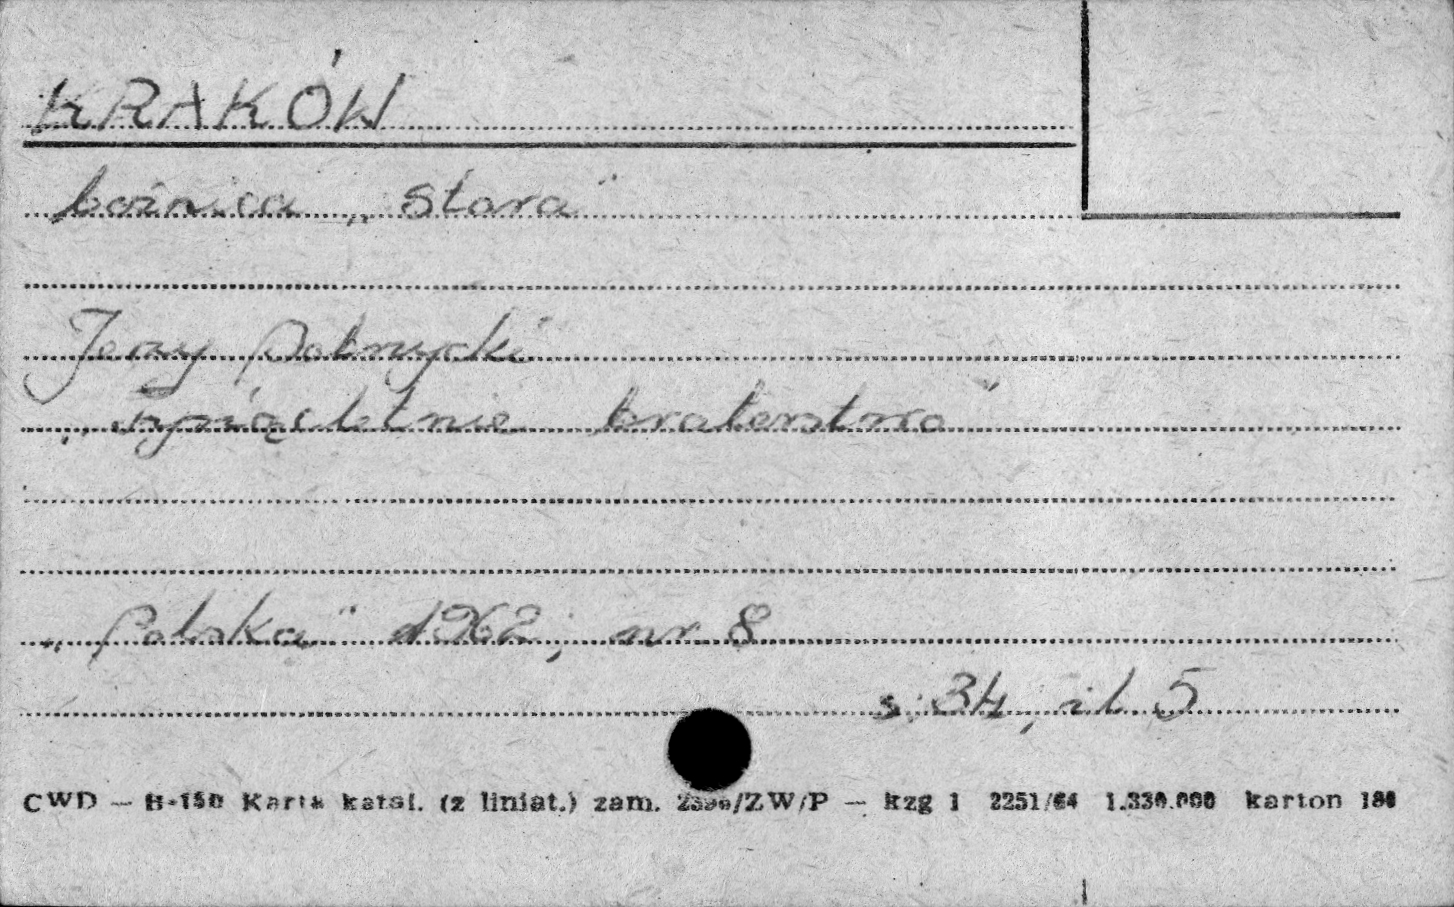 KRAKÓW
bożnica „Stara"
Jerzy Dobrzycki
„Tysiącletnie braterstwo"
„Polska" 1962, nr 8
s. 34, il. 5
CWD — B-150 Karta katal. (z liniat.) zam. /ZW/P — kzg 1 2251/64 1.330.000 karton